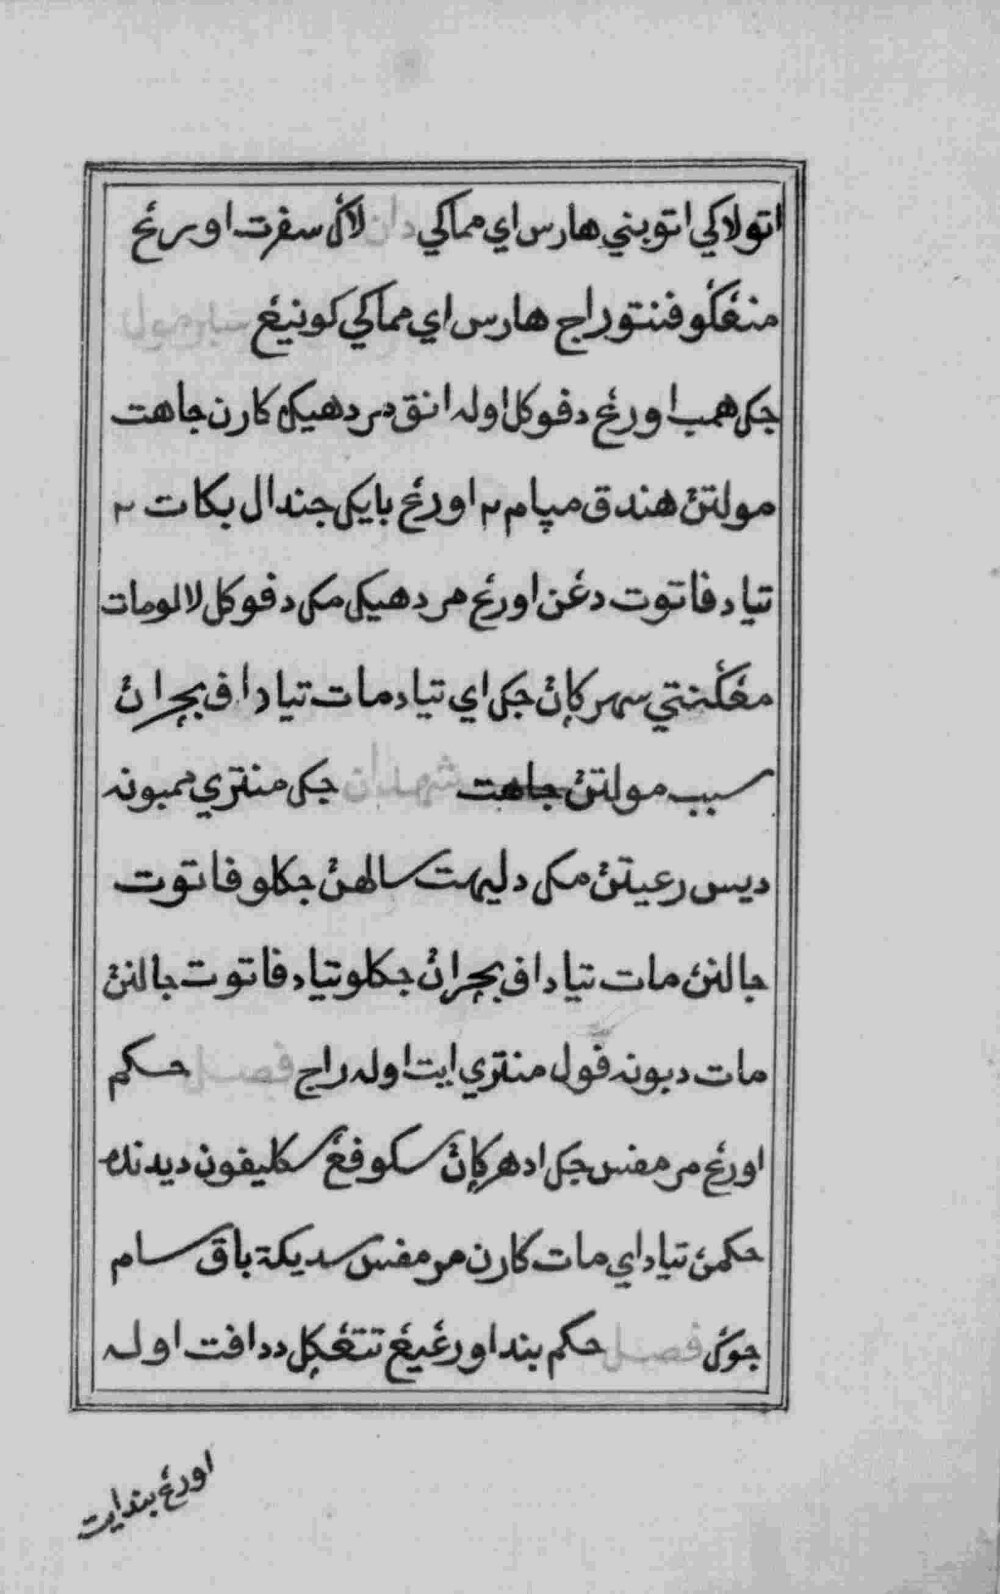 اتولاکي اتوبني هارس اي مماکي دان لاݢ سفرت اورڠ
منڠݢو فنتو راج هارس اي مماکي کونيڠ
جک همب اورڠ دفوکل اوله انق مردهيک کارن جاهت
مولتڽ هندق مپام ٢ اورڠ بايک جندال بکات ٢
تياد فاتوت دڠن اورڠ مردهيک مک دفوکل لالو مات
مڠݢنتي سهرݢاڽ جک اي تياد مات تياد اف بچراڽ
سبب مولتڽ جاهت جک منتري ممبونه
ديس رعيتڽ مک دليهت سالهڽ جکلو فاتوت
جالنڽ مات تياد اف بچراڽ جکلو تياد فاتوت جالنڽ
مات دبونه فول منتري ايت اوله راج فصل حکم
اورڠ مرمفس جک اد هرݢاڽ سکوفڠ سکليفون ديدنده
حکمڽ تياد اي مات کارن مرمفس سديکة باق سام
جوݢ فصل حکم بند اورڠ يڠ تتڠݢل ددافت اوله
اورڠ بند ايت